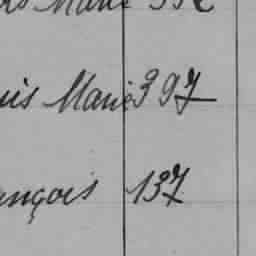 Marie 332
uis Marie 397
ançois 137